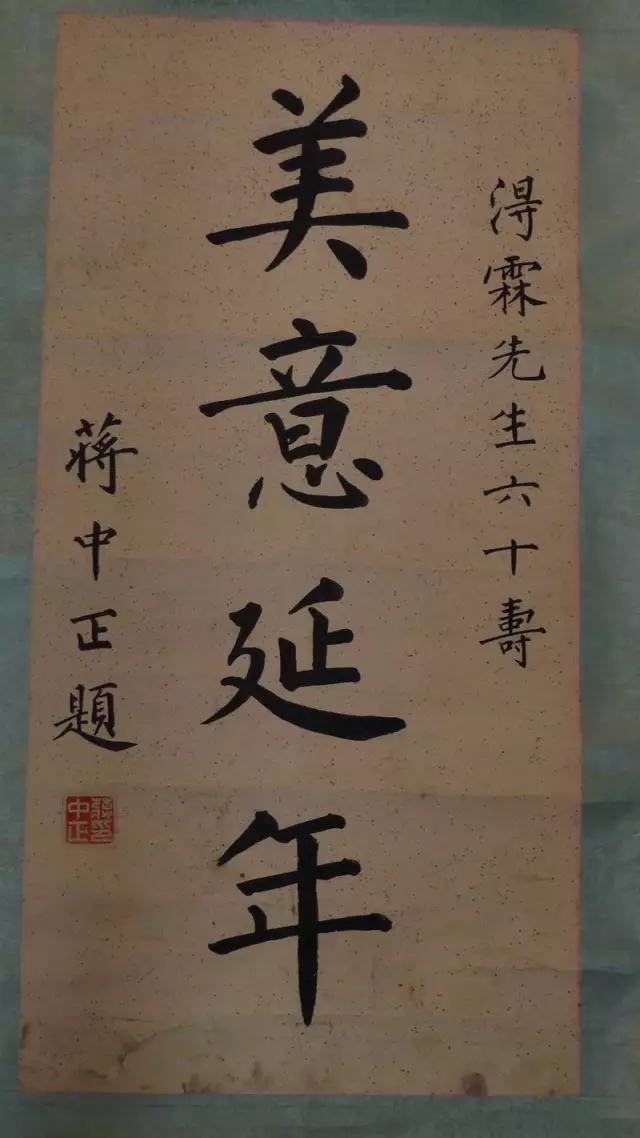 淂霖先生六十壽
美意延年
蔣中正題
蔣中正印